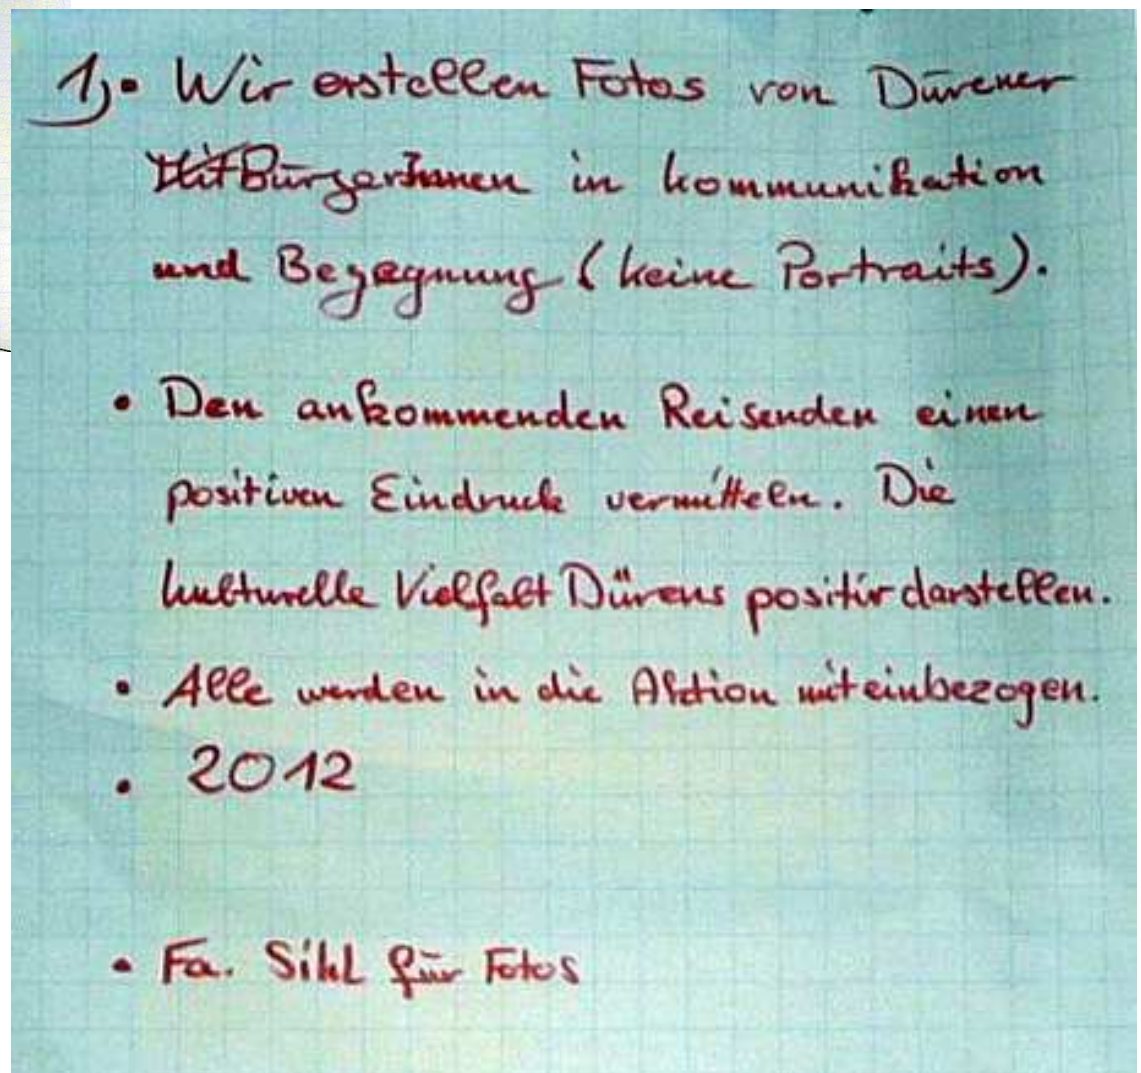 1) • Wir erstellen Fotos von Dürener
BürgerInnen in Kommunikation
und Begegnung (keine Portraits).
• Den ankommenden Reisenden einen
positiven Eindruck vermitteln. Die
kulturelle Vielfalt Dürens positiv darstellen.
• Alle werden in die Aktion miteinbezogen.
• 2012
• Fa. Sihl für Fotos